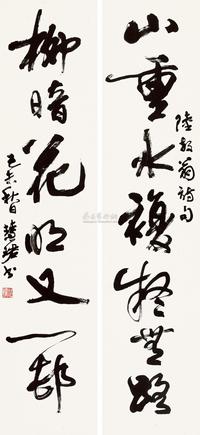 山重水複疑無路
陸放翁詩句
柳暗花明又一邨
己未秋日